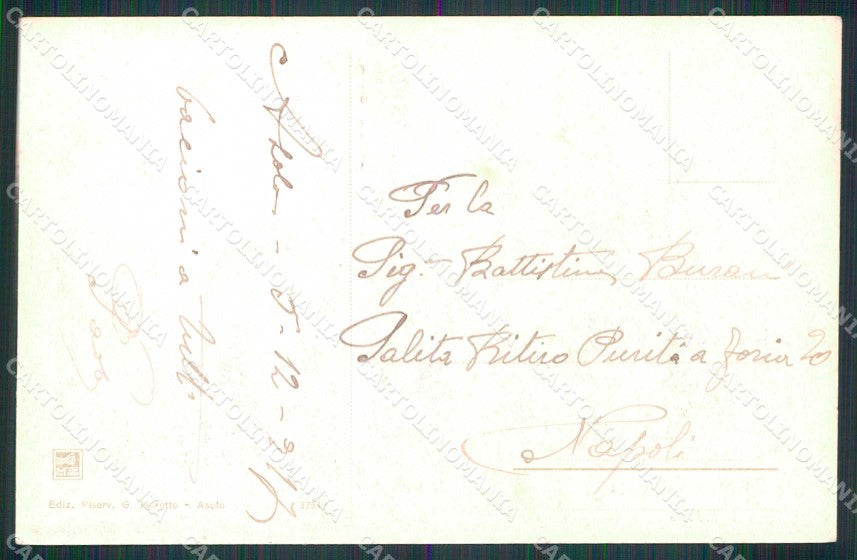 Asolo - 5-12-947
bacioni a tutti
Paola
Per la
Sig. Battistina Buran
Salita Ritiro Purità a Foria 20
Napoli
Ediz. Riserv. G. - Asolo
CARTOLINOMANIA